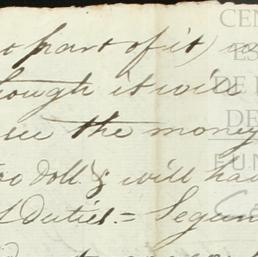 part of it)
ough it will
see the money
oo doll.s & will ha
Duties. = Segun
CEN
ES
DE
DE
FUN